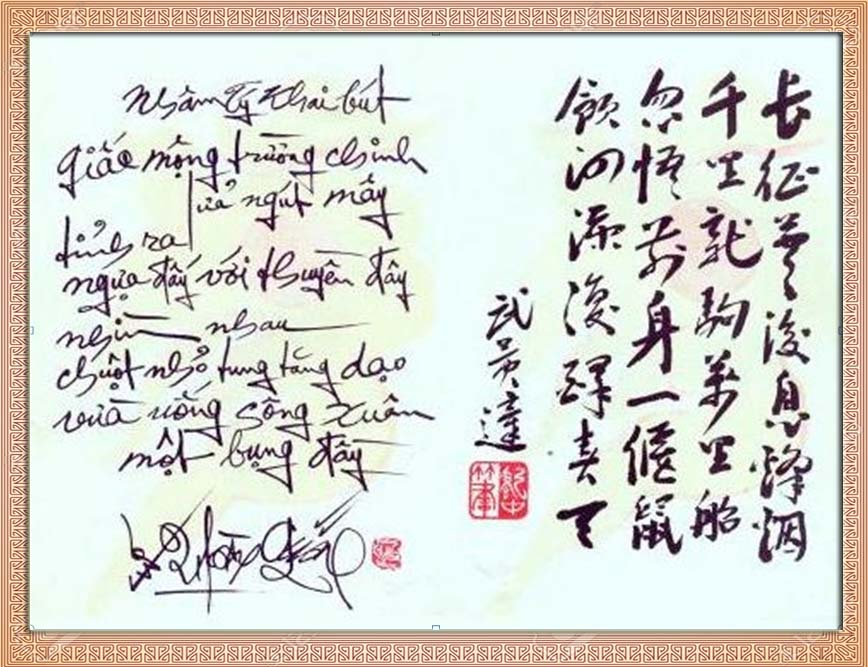 Nhâm Tý khai bút
giấc mộng trường chinh
lửa ngút mây
tỉnh ra
ngựa đấy với thuyền đây
nhìn nhau
chuột nhỏ tung tăng dạo
vừa uống sông Xuân
một bụng đầy
长征梦後息烽烟
千里龍駒萬里船
忽悟前身一偃鼠
飲河深後春天
武達